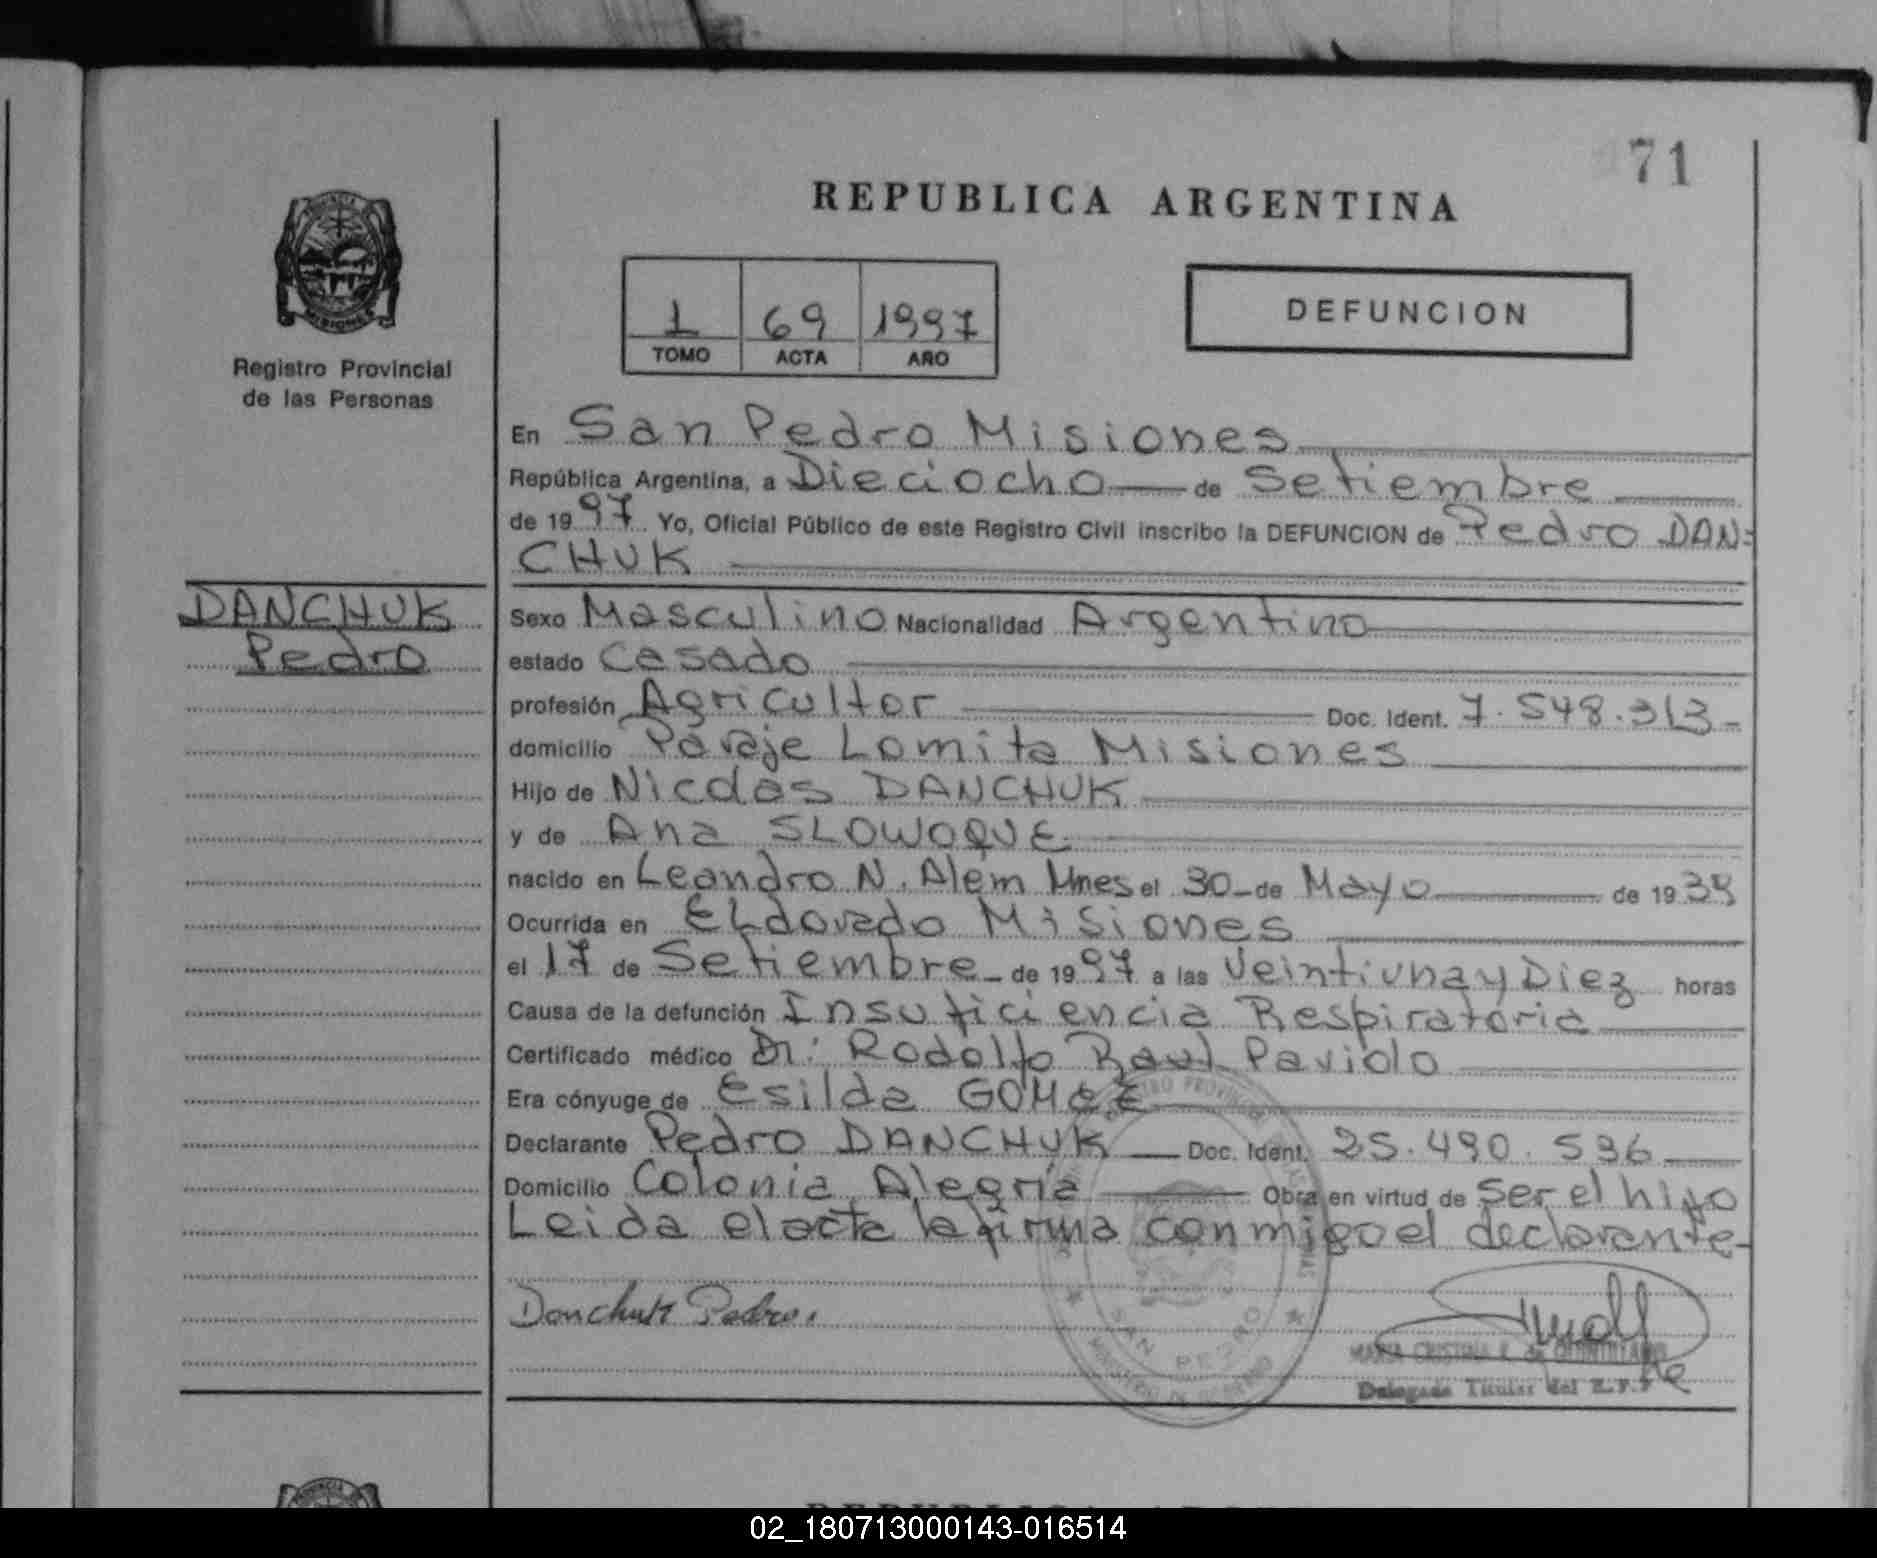 71
REPUBLICA ARGENTINA
1 69 1997
TOMO ACTA AÑO
DEFUNCION
PROVINCIA
MISIONES
Registro Provincial
de las Personas
En San Pedro Misiones
República Argentina, a Dieciocho de Setiembre
de 1997 Yo, Oficial Público de este Registro Civil inscribo la DEFUNCION de Pedro DAN=
CHUK
DANCHUK
Pedro
Sexo Masculino Nacionalidad Argentino
estado Casado
profesión Agricultor Doc. Ident. 7.548.313-
domicilio Paraje Lomita Misiones
Hijo de Nicolas DANCHUK
y de Ana SLOWOQUE
nacido en Leandro N. Alem Mnes el 30 de Mayo de 19
Ocurrida en ELdorado Misiones
el 17 de Setiembre de 1997 a las Veintiuna y Diez horas
Causa de la defunción Insuficiencia Respiratoria
Certificado médico Dr: Rodolfo Raul Paviolo
Era cónyuge de Esilda
Declarante Pedro DANCHUK Doc. Ident. 25.490.536
Domicilio Colonia Alegría Obra en virtud de ser el hijo
Leida el acta la firma conmigo el declarante-
Danchuk Pedro.
SAN PEDRO
MINISTERIO DE GOBIERNO
MARIA CRISTINA
Delegada Titular del R.P.P
02_180713000143-016514